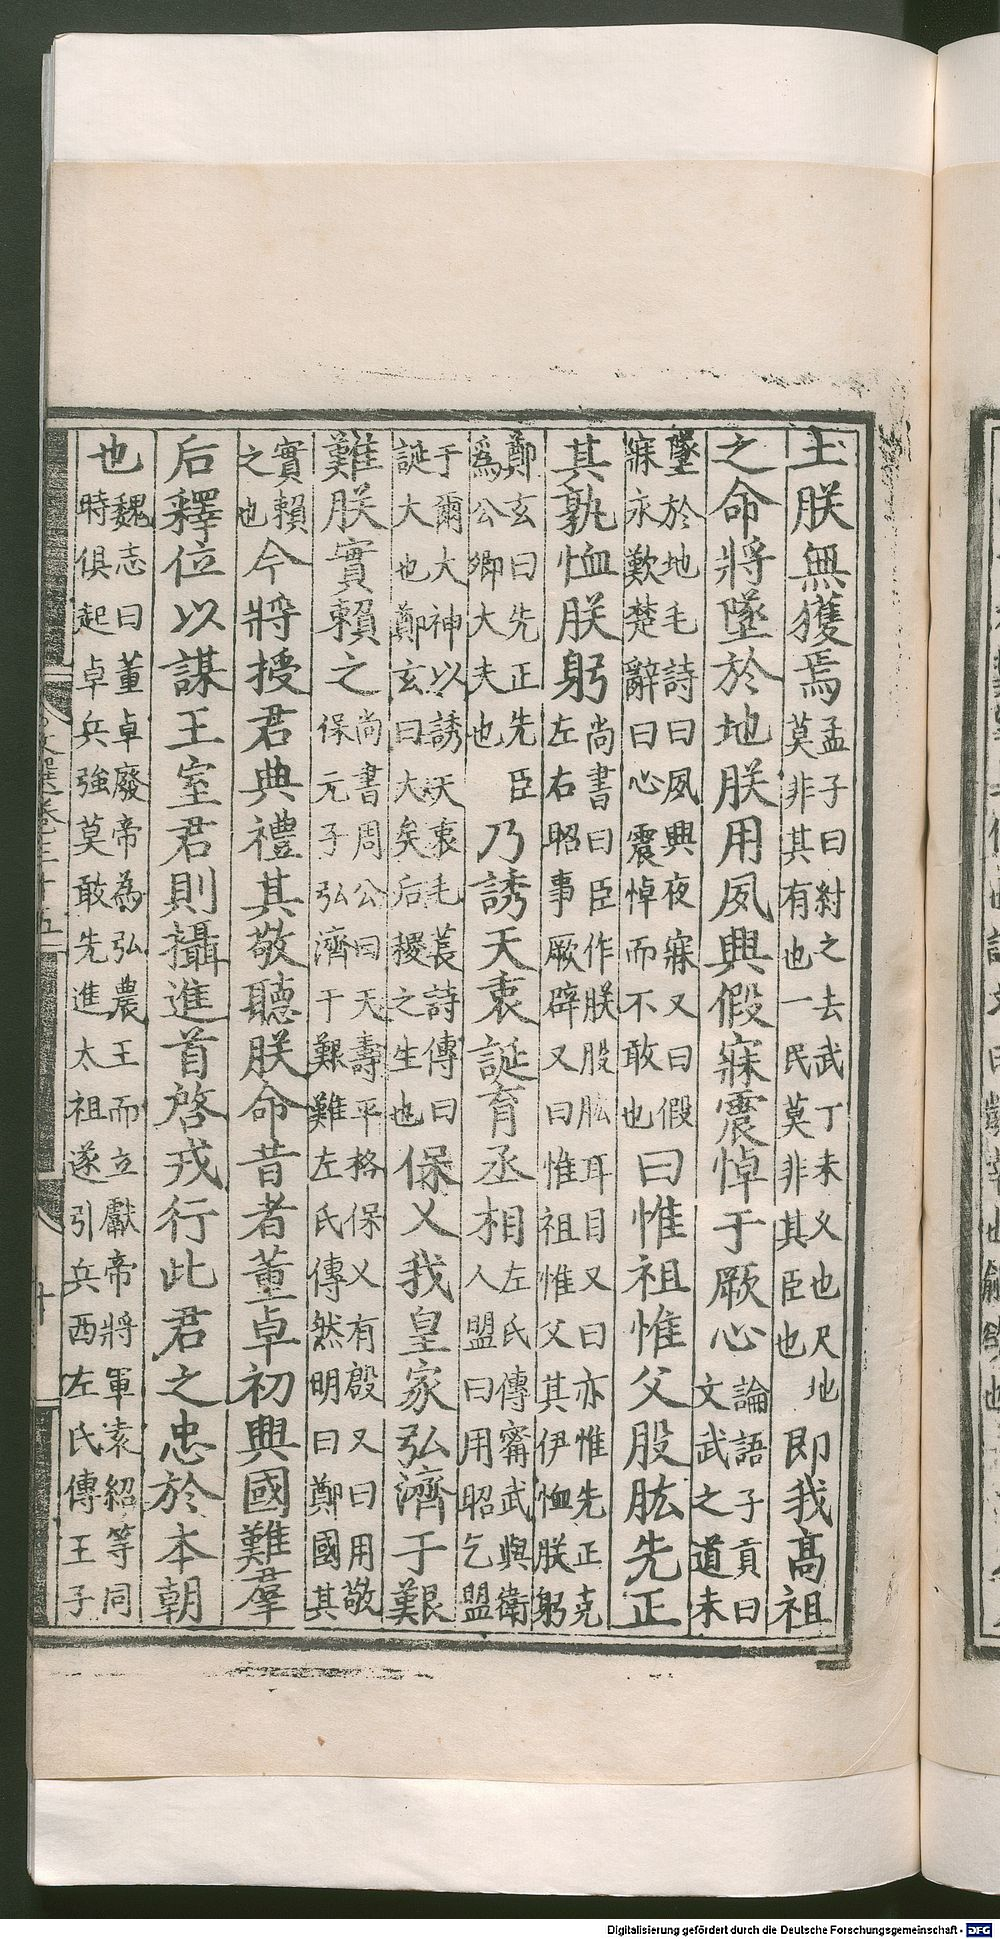 土朕無獲焉孟子曰紂之去武丁未乂也尺地莫非其有也一民莫非其臣也即我高祖
之命將墜於地朕用夙興假寐震悼于厥心論語子貢曰文武之道未
墜於地毛詩曰夙興夜寐又曰假寐永歎楚辭曰心震悼而不敢也曰惟祖惟父股肱先正
其孰恤朕躬尚書曰臣作朕股肱耳目又曰亦惟先正克左右昭事厥辟又曰惟祖惟父其伊恤朕躬
鄭玄曰先正先臣為公卿大夫也乃誘天衷誕育丞相左氏傳甯武與衛人盟曰用昭乞盟
于爾大神以誘天衷毛萇詩傳曰誕大也鄭玄曰大矣后稷之生也保乂我皇家弘濟于艱
難朕實賴之尚書周公曰天壽平格保乂有殷又曰用敬保元子弘濟于艱難左氏傳然明曰鄭國其
實賴之也今將授君典禮其敬聽朕命昔者董卓初興國難羣
后釋位以謀王室君則攝進首啓戎行此君之忠於本朝
也魏志曰董卓廢帝為弘農王而立獻帝將軍袁紹等同時俱起卓兵強莫敢先進太祖遂引兵西左氏傳王子
文選卷三十五
十
Digitalisierung gefördert durch die Deutsche Forschungsgemeinschaft - DFG